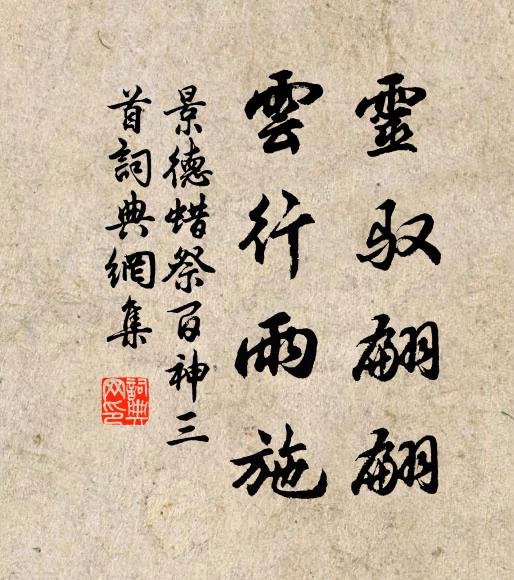 靈馭翩翩
雲行雨施
景德蜡祭百神三
首詞典網集
詞典
网印